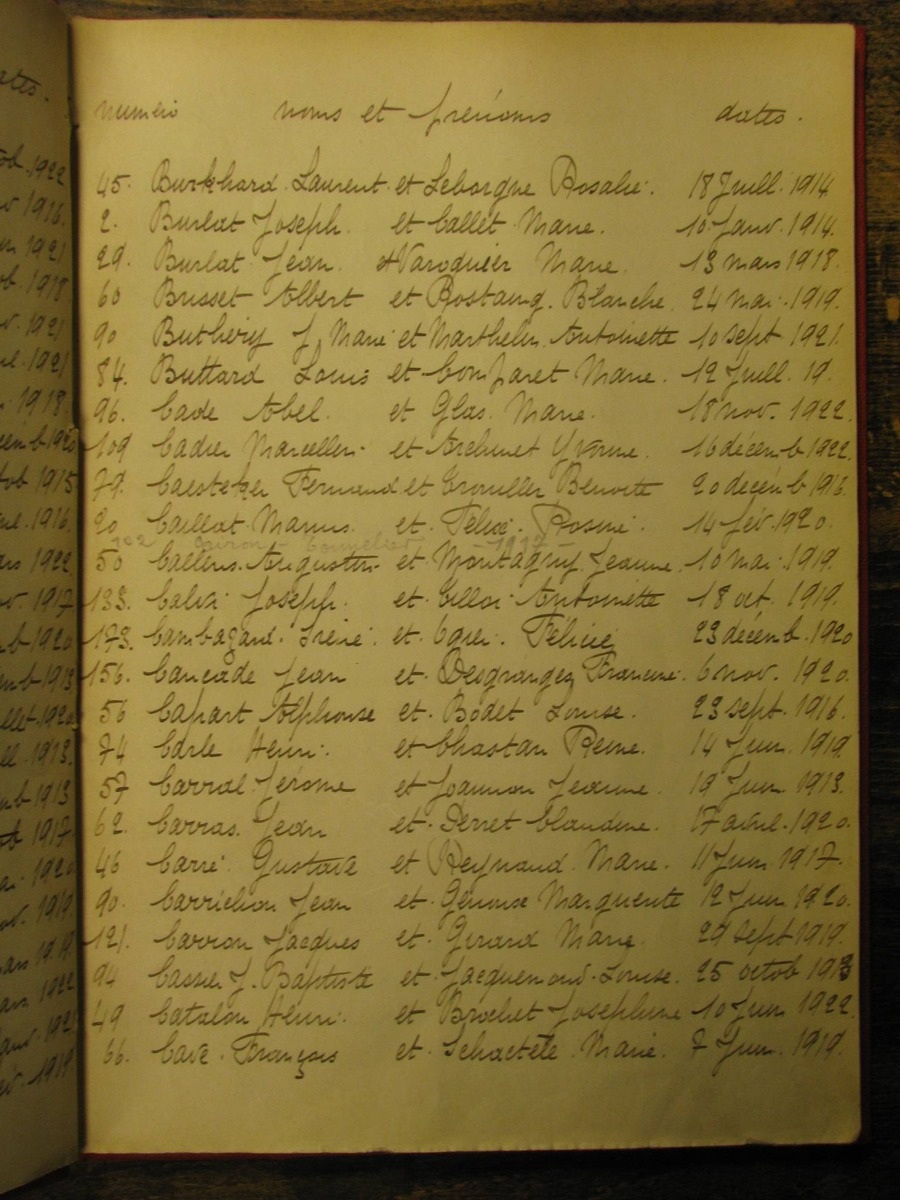 numéro noms et prénoms dates.
45. Burkhard Laurent et Leborgne Rosalie. 18 Juill. 1914
2. Burlat Joseph. et Callet Marie. 10 Janv. 1914.
29. Burlat Jean. et Varoquier Marie. 13 mars 1918.
60 Busset Albert et Rostang. Blanche. 24 mai. 1919.
90 Buthéry J. Marie et Marthelin. Antoinette 10 sept 1921.
84. Buttard Louis et Comparet Marie. 12 Juill. 19.
96. Cade Abel et Glas. Marie. 18 nov. 1922.
109 Cadier Marcellin et Yvonne. 16 décemb 1922.
79. Caesteker Fernand et Trouiller Benoite 20 décemb 1916.
20 Caillat Marius et. Félix. Rosine. 14 fév. 1920.
102 1917
50 Callens. Augustin et Montagny. Jeanne. 10 mai. 1919.
133. Calvi Joseph. et. Antoinette 18 oct. 1919.
173. Cambazard. Irénée. et. Félicie 23 décemb. 1920
156. Cancade Jean et. Desgranges Francine. 6 nov. 1920.
56 Capart Alphonse et. Bodet Louise. 23 sept. 1916.
74 Carle Henri. et Chastan Reine. 14 Juin. 1919.
57 Carral Jérome et Joannon Jeanne. 19 Juin 1913.
62. Carras. Jean et. Derret Claudine. 17 avril. 1920.
46 Carré Gustave et Reynaud. Marie. 11 Juin 1917.
90. Carrichon Jean et. Genouse Marguerite 12 Juin 1920.
121. Carron Jacques et. Girard Marie. 29 sept 1919.
94 Cassie J. Baptiste et. Jacquemond. Louise. 25 octob 1913
49 Catalon Henri. et Brochet Joséphine 10 Juin 1922.
66. Cave. François et. Schactélé. Marie. 7 Juin. 1919.